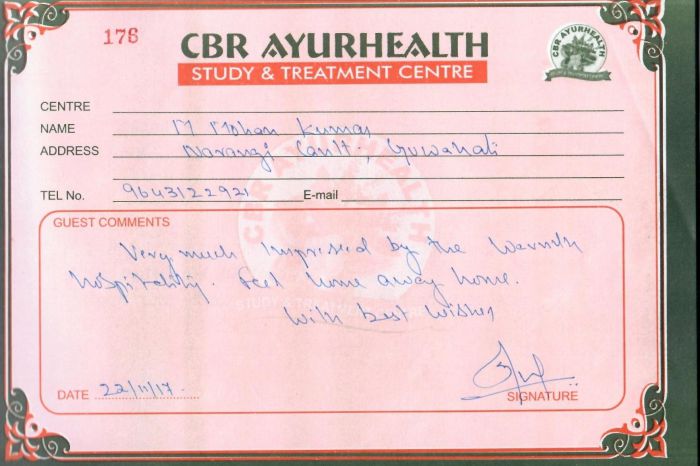 176
CBR AYURHEALTH
STUDY & TREATMENT CENTRE
CBR AYURHEALTH
CENTRE
NAME M Mohan Kumar
ADDRESS Narangi Cantt., Guwahati
TEL No. 9643122921 E-mail
GUEST COMMENTS
Very much impressed by the warmth
hospitality. Feel home away home.
With best wishes
DATE 22/11/17.
SIGNATURE